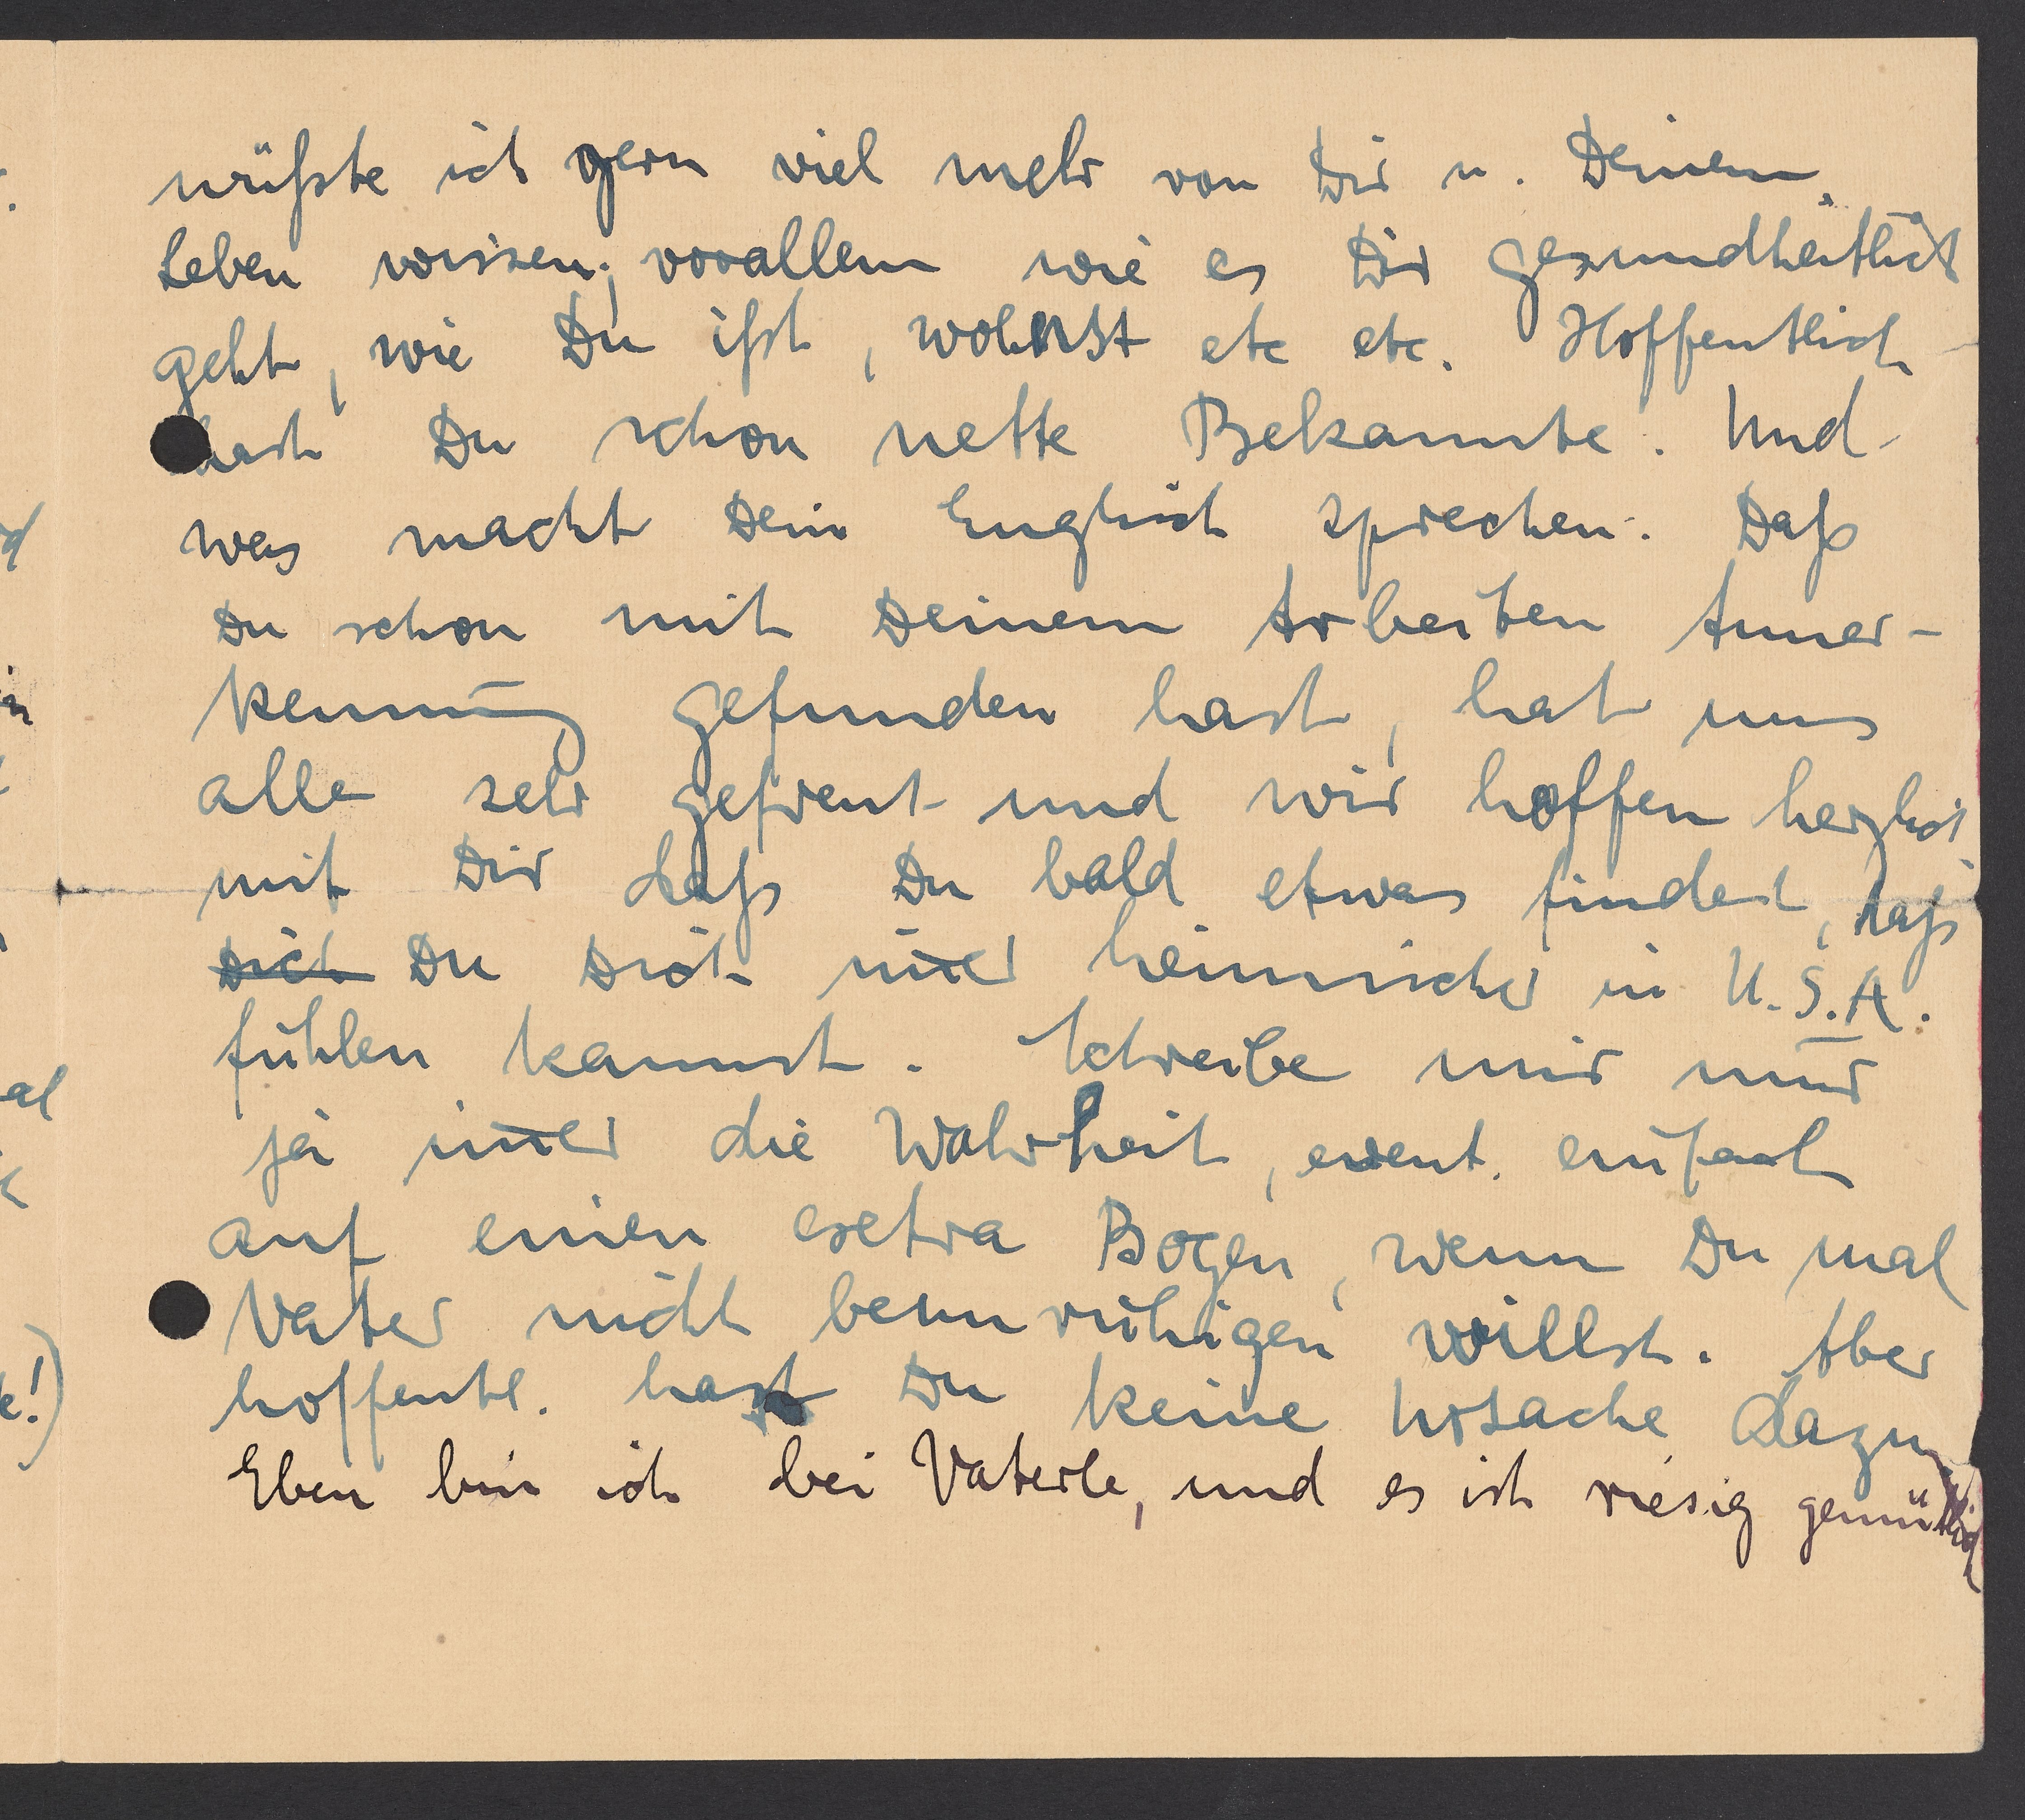 wüßte ich gern viel mehr von Dir u. Deinem
Leben wissen; vorallem wie es Dir gesundheitlich
geht, wie Du ißt, wohnst etc etc. Hoffentlich
hast Du schon nette Bekannte. Und
was macht Dein Englisch sprechen. Daß
Du schon mit Deinem Arbeiten Anner-
kennung gefunden hast, hat uns
alle sehr gefreut und wir hoffen herzlich
mit Dir daß Du bald etwas findest, daß
Dich Du Dich im̅er heimischer in U.S.A.
fühlen kannst. Schreibe mir nur
ja im̅er die Wahrheit, event. einfach
auf einen extra Bogen, wenn Du mal
Vater nicht beunruhigen willst. Aber
hoffentl. hast Du keine Ursache dazu.
Eben bin ich bei Vaterle, und es ist riesig gemütlich